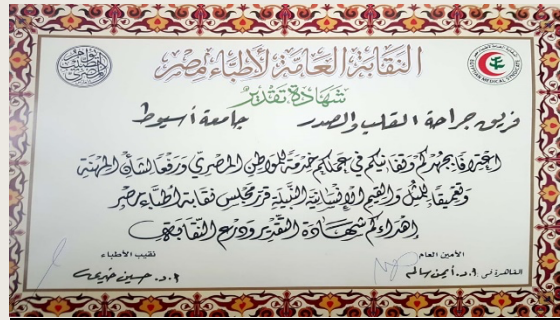 النقابة العامة لأطباء مصر
EGYPTIAN MEDICAL SYNDICATE
شهادة تقدير
فريق جراحة القلب والصدر جامعة أسيوط
اعترافا بجهدكم وتفانيكم في عملكم خدمة للمواطن المصري ورفعا لشأن المهنة
وتعميقا للمثل والقيم الإنسانية النبيلة قرر مجلس نقابة أطباء مصر
إهداءكم شهادة التقدير ودرع النقابة
الأمين العام نقيب الأطباء
القاهرة في أ.د. أيمن سالم أ.د. حسين خيري